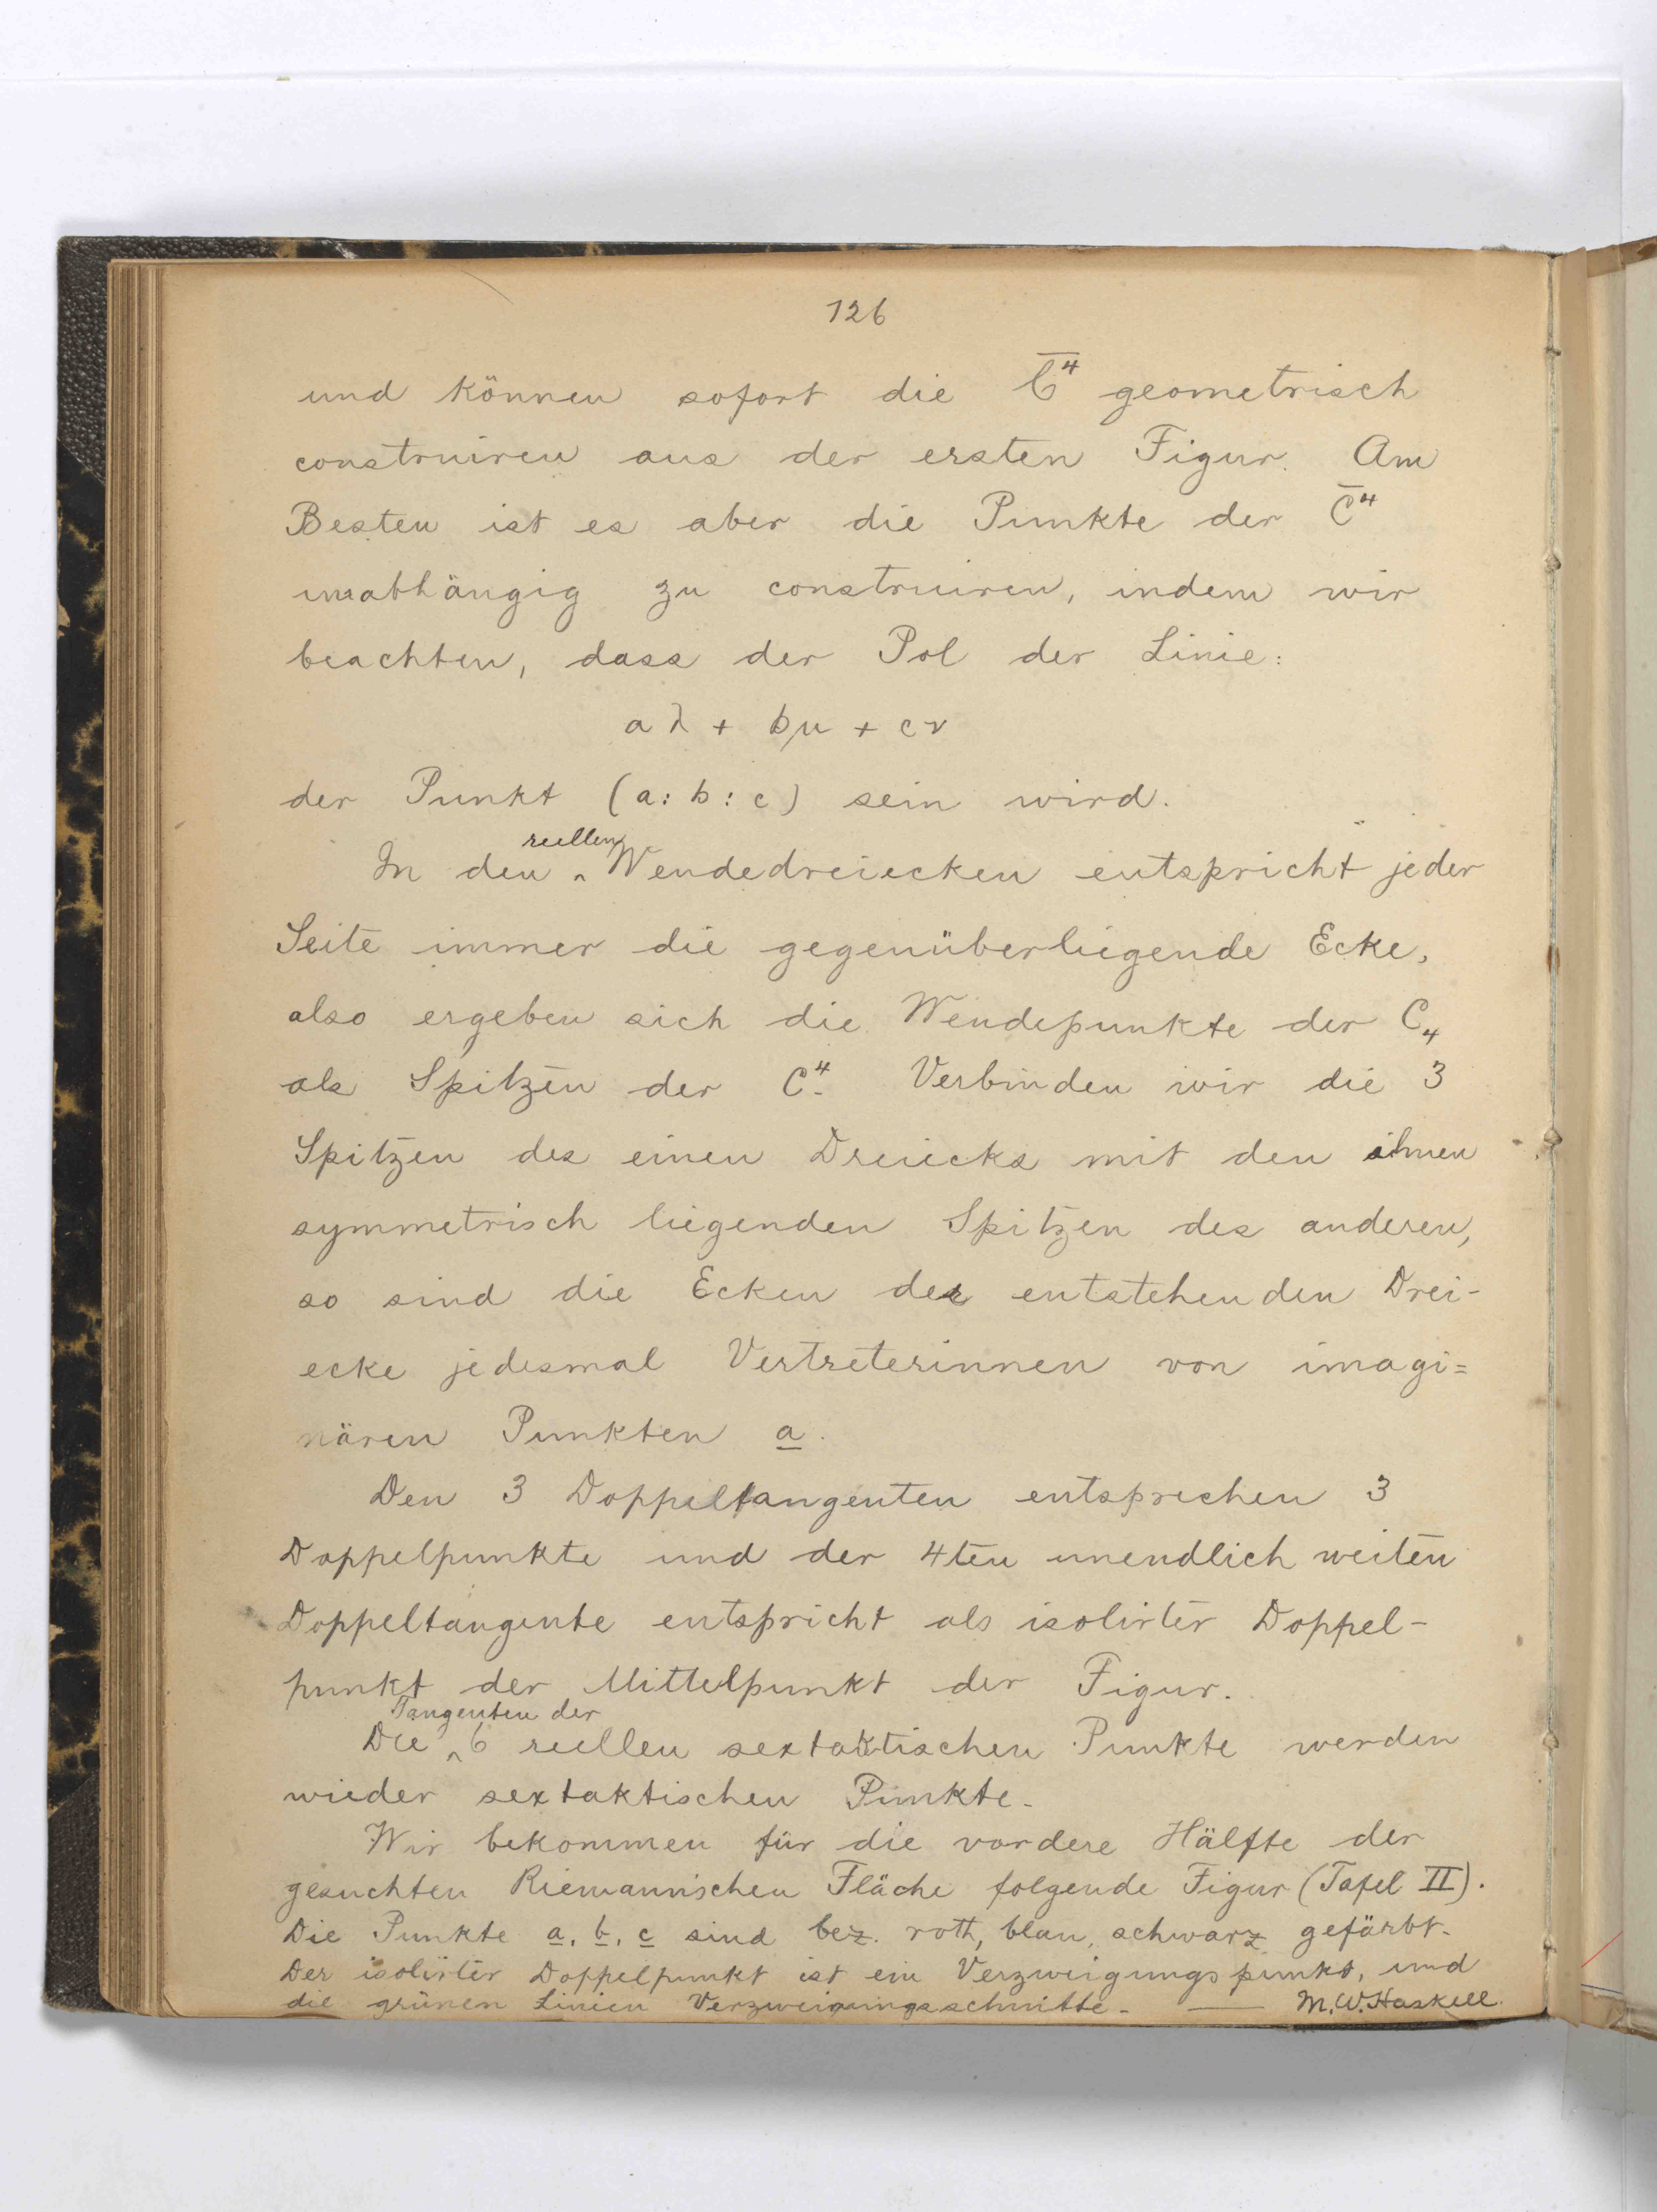 126
und können sofort die C̄⁴ geometrisch
construiren aus der ersten Figur. Am
Besten ist es aber die Punkte der C̄⁴
unabhängig zu construiren, indem wir
beachten, dass der Pol der Linie:
aλ + bμ + cν
der Punkt (a:b:c) sein wird.
In den reellen Wendedreiecken entspricht jeder
Seite immer die gegenüberliegende Ecke,
also ergeben sich die Wendepunkte der C₄
als Spitzen der C⁴. Verbinden wir die 3
Spitzen des einen Dreiecks mit den ihnen
symmetrisch liegenden Spitzen des anderen,
so sind die Ecken der entstehenden Drei-
ecke jedesmal Vertreterinnen von imagi=
nären Punkten a.
Den 3 Doppeltangenten entsprechen 3
Doppelpunkte und der 4ten unendlich weiten
Doppeltangente entspricht als isolirter Doppel-
punkt der Mittelpunkt der Figur.
Die Tangenten der 6 reellen sextaktischen Punkte werden
wieder sextaktischen Punkte.
Wir bekommen für die vordere Hälfte der
gesuchten Riemannischen Fläche folgende Figur (Tafel II).
Die Punkte a, b, c sind bez. roth, blau, schwarz gefärbt.
Der isolirter Doppelpunkt ist ein Verzweigungspunkt, und
die grünen Linien Verzweigungsschnitte. — M.W. Haskell.